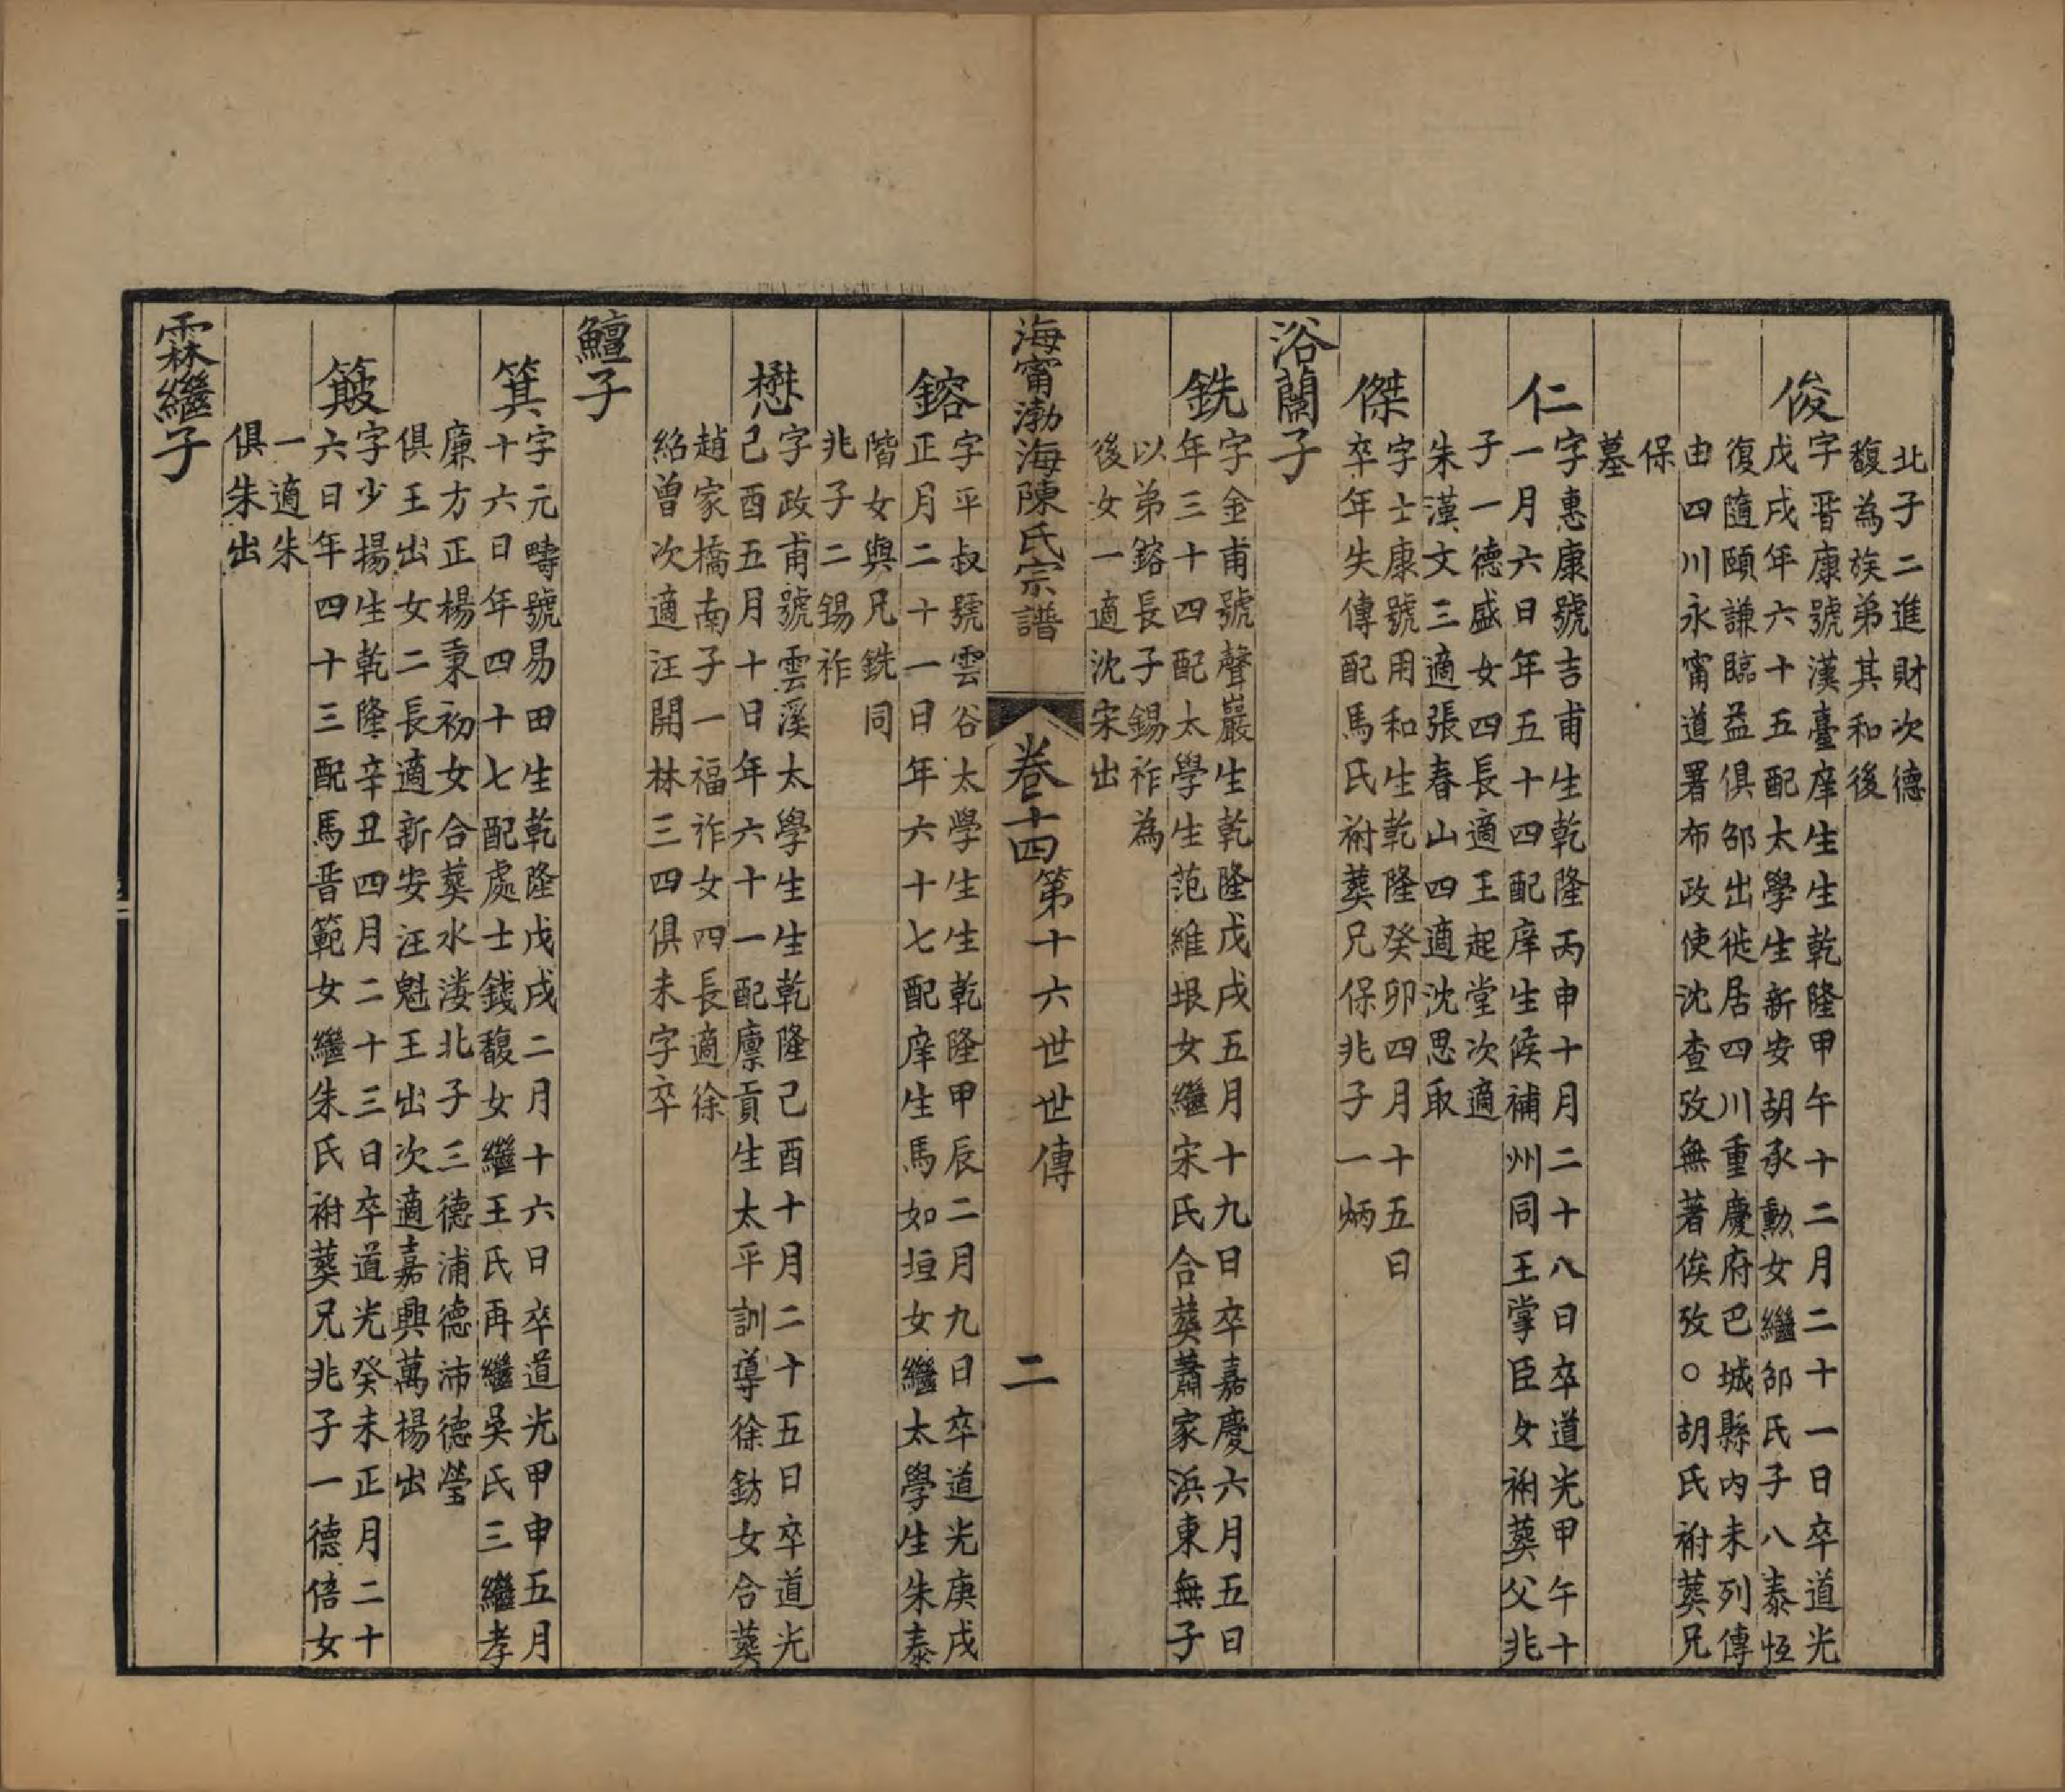 北子二進財次德
馥為族弟其和後
俊
字晋康號漢臺庠生生乾隆甲午十二月二十一日卒道光
戊戌年六十五配太學生新安胡承勳女繼邵氏子八泰恆
復隨頤謙臨益俱邵出徙居四川重慶府巴城縣內未列傳
由四川永甯道署布政使沈查攷無著俟攷○胡氏祔葬兄
保
墓
仁
字惠康號吉甫生乾隆丙申十月二十八日卒道光甲午十
一月六日年五十四配庠生候補州同王掌臣女祔葬父兆
子一德盛女四長適王起堂次適
朱漢文三適張春山四適沈思取
傑
字士康號用和生乾隆癸卯四月十五日
卒年失傳配馬氏祔葬兄保兆子一炳
浴蘭子
銑
字金甫號聲巖生乾隆戊戌五月十九日卒嘉慶六月五日
年三十四配太學生范維垠女繼宋氏合葬蕭家浜東無子
以弟鎔長子錫祚為
後女一適沈宋出
海甯渤海陳氏宗譜
卷十四
第十六世世傳
二
鎔
字平叔號雲谷太學生生乾隆甲辰二月九日卒道光庚戌
正月二十一日年六十七配庠生馬如垣女繼太學生朱泰
階女與兄銑同
兆子二錫祚
懋
字政甫號雲溪太學生生乾隆己酉十月二十五日卒道光
己酉五月十日年六十一配廪貢生太平訓導徐鈁女合葬
趙家橋南子一福祚女四長適徐
紹曾次適汪開林三四俱未字卒
鱣子
箕
字元疇號易田生乾隆戊戌二月十六日卒道光甲申五月
十六日年四十七配處士錢馥女繼王氏再繼吳氏三繼孝
廉方正楊秉初女合葬水溇北子三德浦德沛德瑩
俱王出女二長適新安汪魁王出次適嘉興萬楊出
簸
字少揚生乾隆辛丑四月二十三日卒道光癸未正月二十
六日年四十三配馬晋範女繼朱氏祔葬兄兆子一德倍女
一適朱
俱朱出
霖繼子